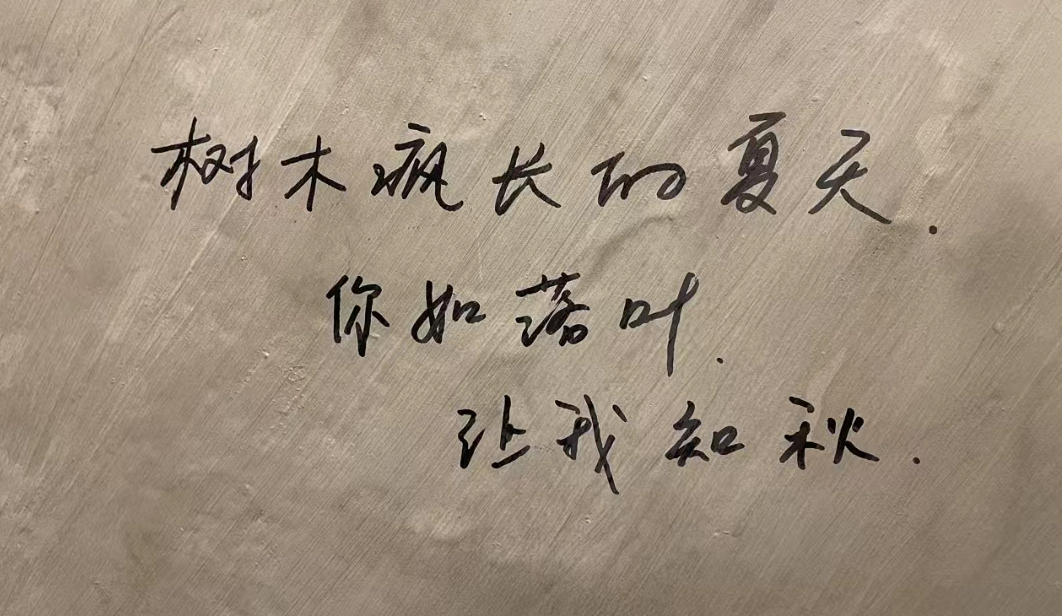 树木疯长的夏天.
你如落叶.
让我知秋.